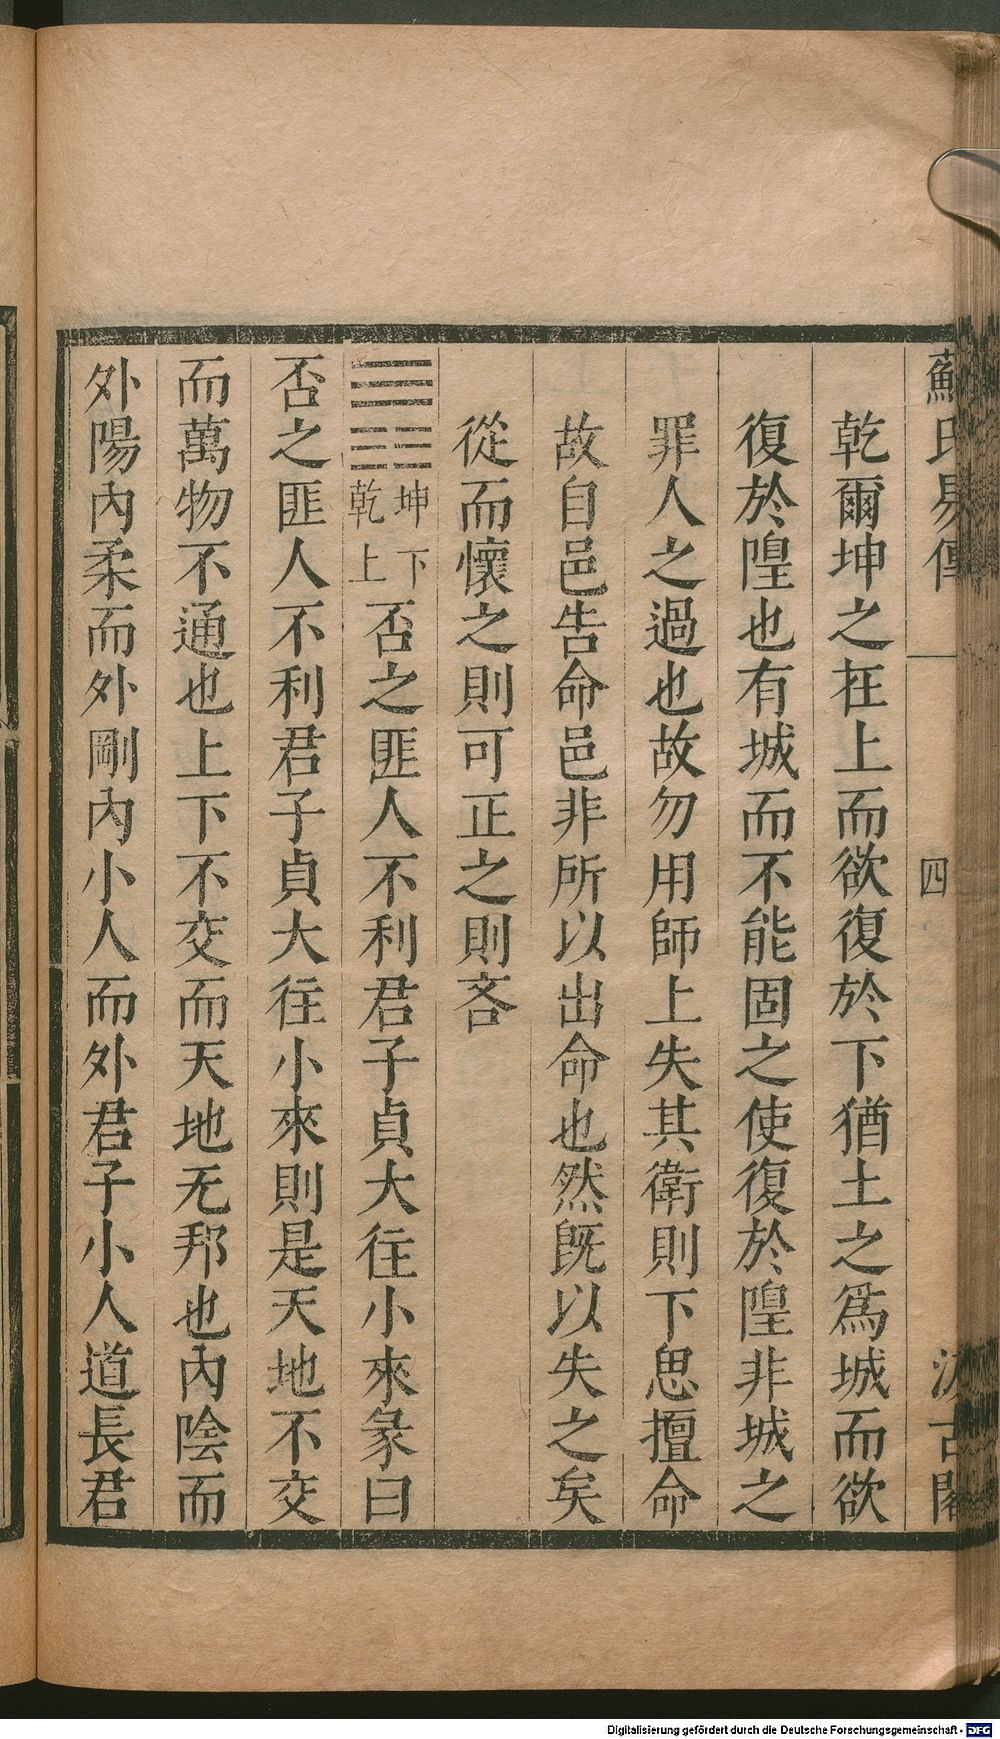 蘇氏易傳 四 汲古閣
乾爾坤之在上而欲復於下猶土之爲城而欲
復於隍也有城而不能固之使復於隍非城之
罪人之過也故勿用師上失其衛則下思擅命
故自邑告命邑非所以出命也然旣以失之矣
從而懷之則可正之則吝
䷋坤下乾上否之匪人不利君子貞大往小來彖曰
否之匪人不利君子貞大往小來則是天地不交
而萬物不通也上下不交而天地无邦也內陰而
外陽內柔而外剛內小人而外君子小人道長君
Digitalisierung gefördert durch die Deutsche Forschungsgemeinschaft - DFG